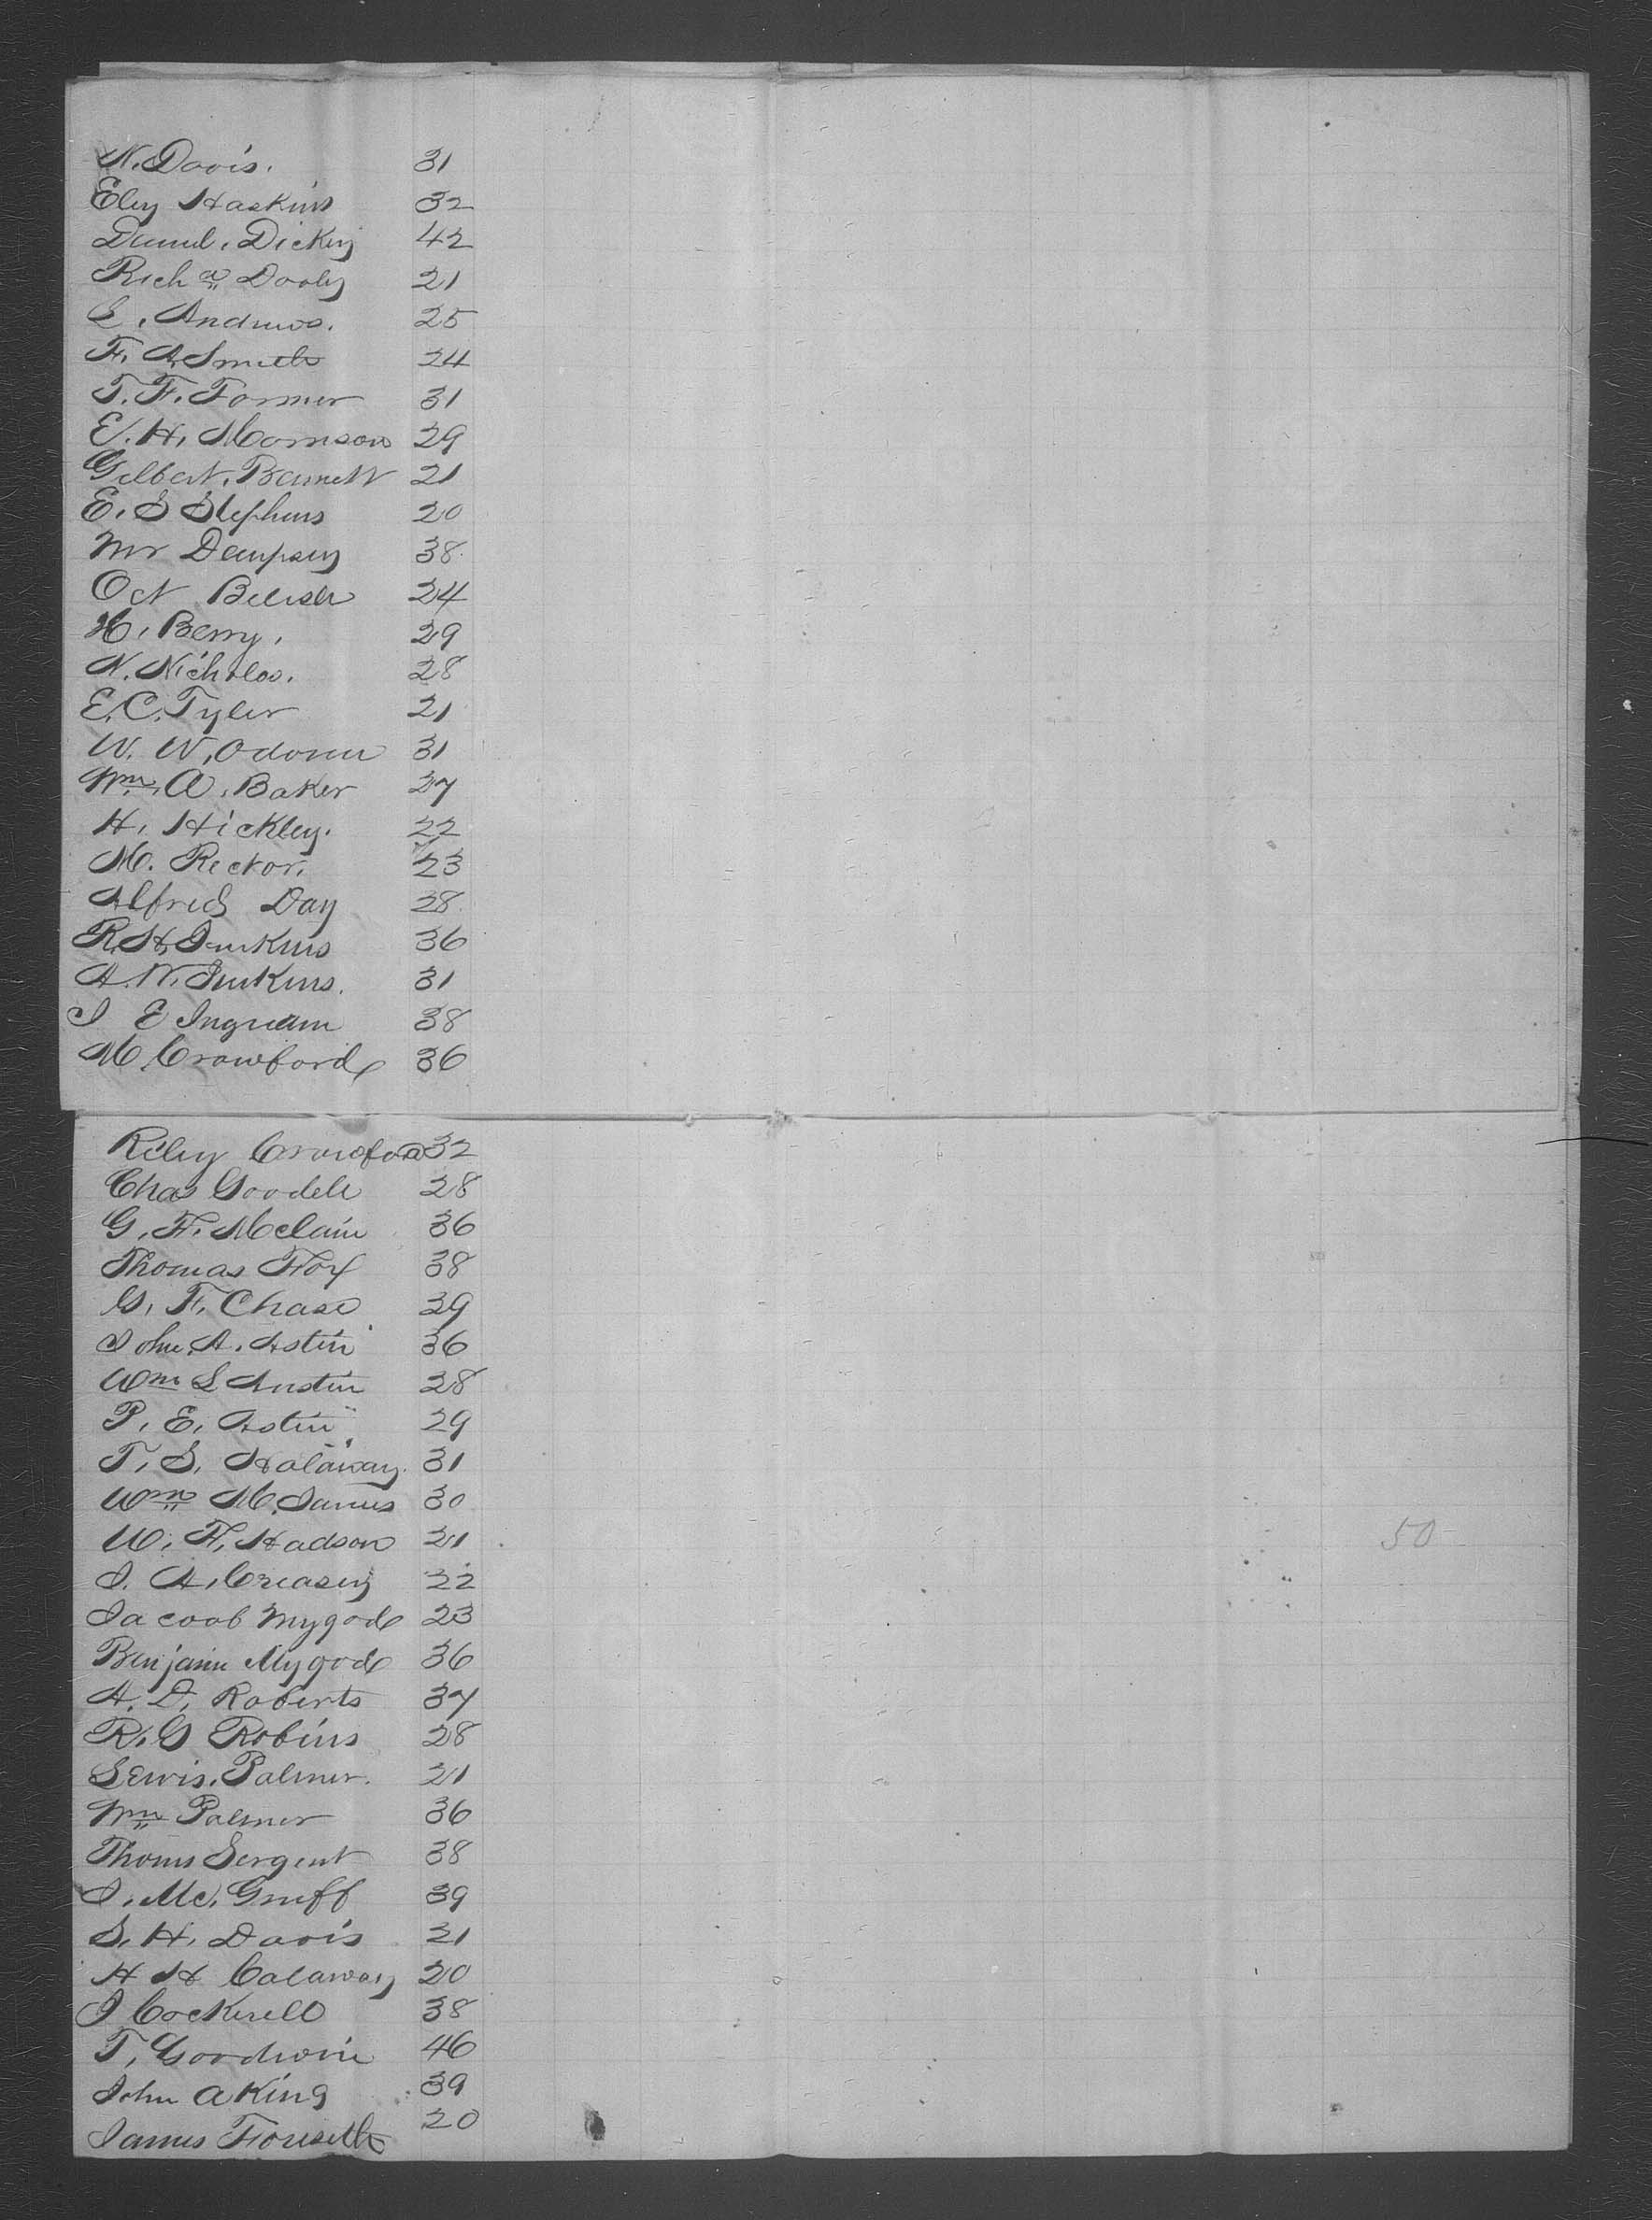 N. Davis. 31
Eley Haskins 32
Daniel. Dickey 42
Richd Dooley 21
L. Andrews. 25
F. A. Smith 24
T. F. Farmer 31
E. H. Morrison 29
Gilbert. Barnett 21
E. S Stephens 20
Mr Dempsey 38
Oct 24
H. Berry. 29
N. Nicholas. 28
E. C. Tyler 21
W. W. Odoner 31
Wm. A. Baker 27
H. Hickley. 22
M. Rector. 23
Alfred Day 28
R. H. Jenkins 36
A. W. Jenkins. 31
J E Ingream 38
M. Crawford 36
Riley Crawford 32
Chas Goodell 28
G. F. McClain 36
Thomas Fox 38
G. F. Chase 39
John. A. Astin 36
Wm L Austin 28
P. E. Astin 29
T. S. Halaway. 31
Wm M. James 30
W. F. Hadson 21
50
J. A. Creasey 22
Jacoob Mygode 23
Benjamin Mygode 36
A. D. Roberts 37
R. G Robins 28
Lewis. Palmer. 21
Wm Palmer 36
Thoms Sergent 38
J. Mc. Gruff 39
S. H. Davis 21
H H Calaway 20
J Cockerell 38
T. Goodwin 46
John A King 39
James 20